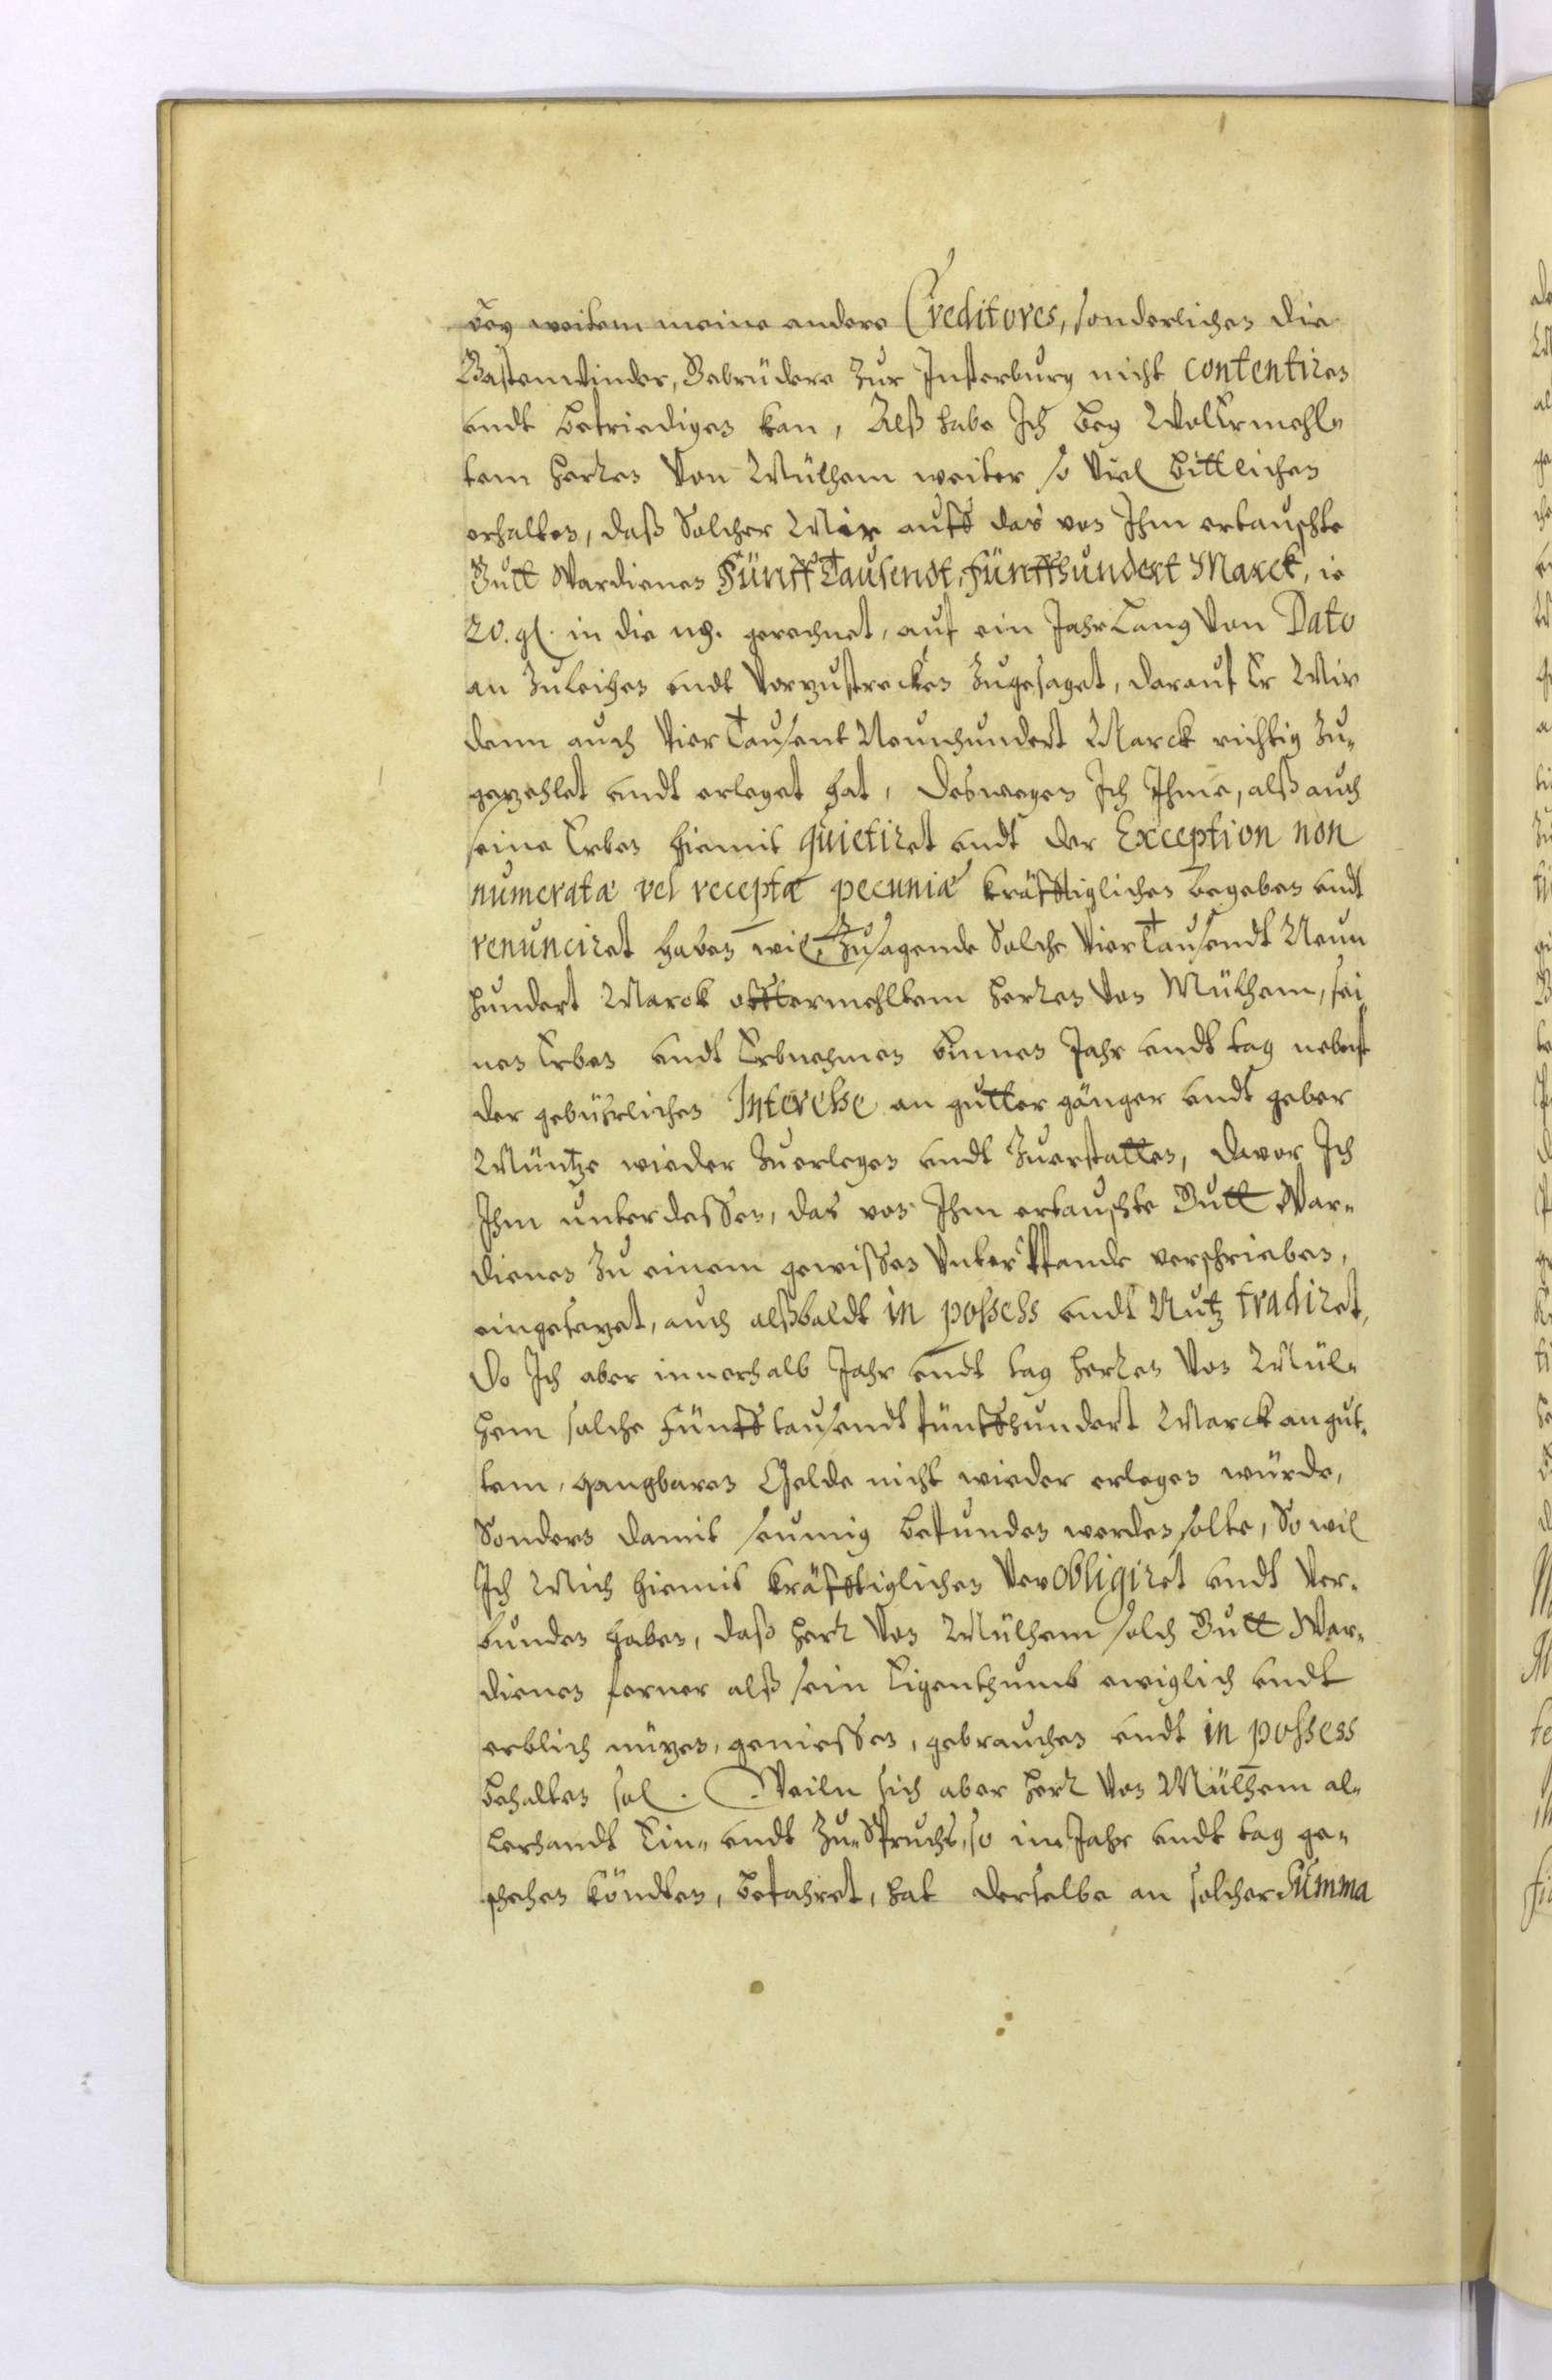 bey weitem meine andere Creditores, sonderlichen die
Bastenwinder, Gebrüdere zur Insterburg nicht contentiren
undt befriediges kan, Alß habe Ich bey WolErmehl„
tem Herren Von Mülhem weiter so viel bittlichen
erhalten, daß Solcher Mir auff das von Ihm ertauschte
Gutt Wardienen Fünff Tausendt, Fünffhundert Marck, ie
20. gl. in die mg. gerechnet, auf ein Jahr Lang Von Dato
an Zuleihen undt Vorzustrecken Zugesaget, darauf Er Mir
denn auch Vier Tausent Neunhundert Marck richtig Zu„
gezehlet undt erleget hat, Deswegen Ich Ihme, alß auch
seine Erben hiemit quietiret undt der Exception non
numeratæ vel receptæ pecuniæ kräfftiglichen begeben undt
renunciret haben wil, Zusagende Solche Vier Tausendt Neun
hundert Marck offtermehltem Herren Von Mülhem, sei
nen Erben undt Erbnehmen binnen Jahr undt tag nebenst
der gebührlichen Interesse an gutter gänger undt geber
Müntze wieder Zuerlegen undt Zuerstatten, Davor Ich
Ihm unterdessen, das von Ihm ertauschte Gutt War„
dienen Zu einem gewissen Unterpfande verschrieben,
eingesezet, auch alßbaldt in possess undt Nutz tradiret,
Do Ich aber innerhalb Jahr undt tag Herren Von Mül„
hem solche Fünfftausendt fünffhundert Marck an gut„
tem, gangbaren Gelde nicht wieder erlegen würde,
Sondern damit seumig befunden werden solte, So wil
Ich Mich hiemit kräfftiglichen Verobligiret undt Ver„
bunden haben, daß Herr Von Mülhem solch Gutt War„
dienen ferner alß sein Eigenthumb ewiglich undt
erblich nüzen, geniessen, gebrauchen undt in possess
behalten sol. Weiln sich aber Herr Von Mülhem al„
lerhandt Ein„ undt Zu„Spruchs, so im Jahr undt tag ge„
schehen köndten, befahret, hat derselbe an solcher Summa